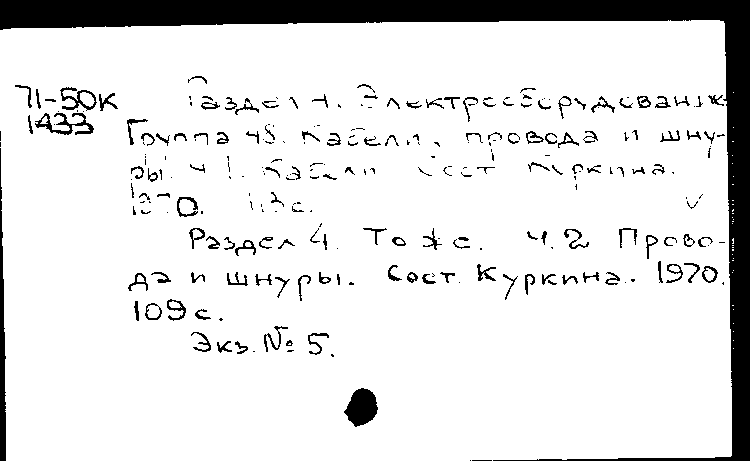 71-50К Раздел 4. Электрооборудование.
1433 Группа 48. Кабели, провода и шну-
ры. Ч 1. Кабели Сост Куркина.
1970. с.
Раздел 4. То же. Ч.2 Прово-
да и шнуры. Сост. Куркина. 1970.
109 с.
Экз. № 5.